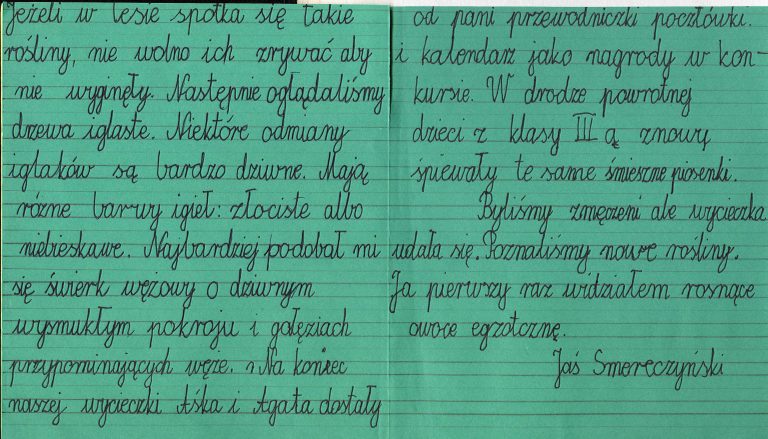 Jeżeli w lesie spotka się takie
rośliny, nie wolno ich zrywać aby
nie wyginęły. Następnie oglądaliśmy
drzewa iglaste. Niektóre odmiany
iglaków są bardzo dziwne. Mają
różne barwy igieł: złociste albo
niebieskawe. Najbardziej podobał mi
się świerk wężowy o dziwnym
wysmukłym pokroju i gałęziach
przypominających węże. Na koniec
naszej wycieczki Aśka i Agata dostały
od pani przewodniczki pocztówki.
i kalendarz jako nagrody w kon-
kursie. W drodze powrotnej
dzieci z klasy III a znowu
śpiewały te same śmieszne piosenki.
Byliśmy zmęczeni ale wycieczka
udała się. Poznaliśmy nowe rośliny.
Ja pierwszy raz widziałem rosnące
owoce egzotczne.
Jaś Smereczyński